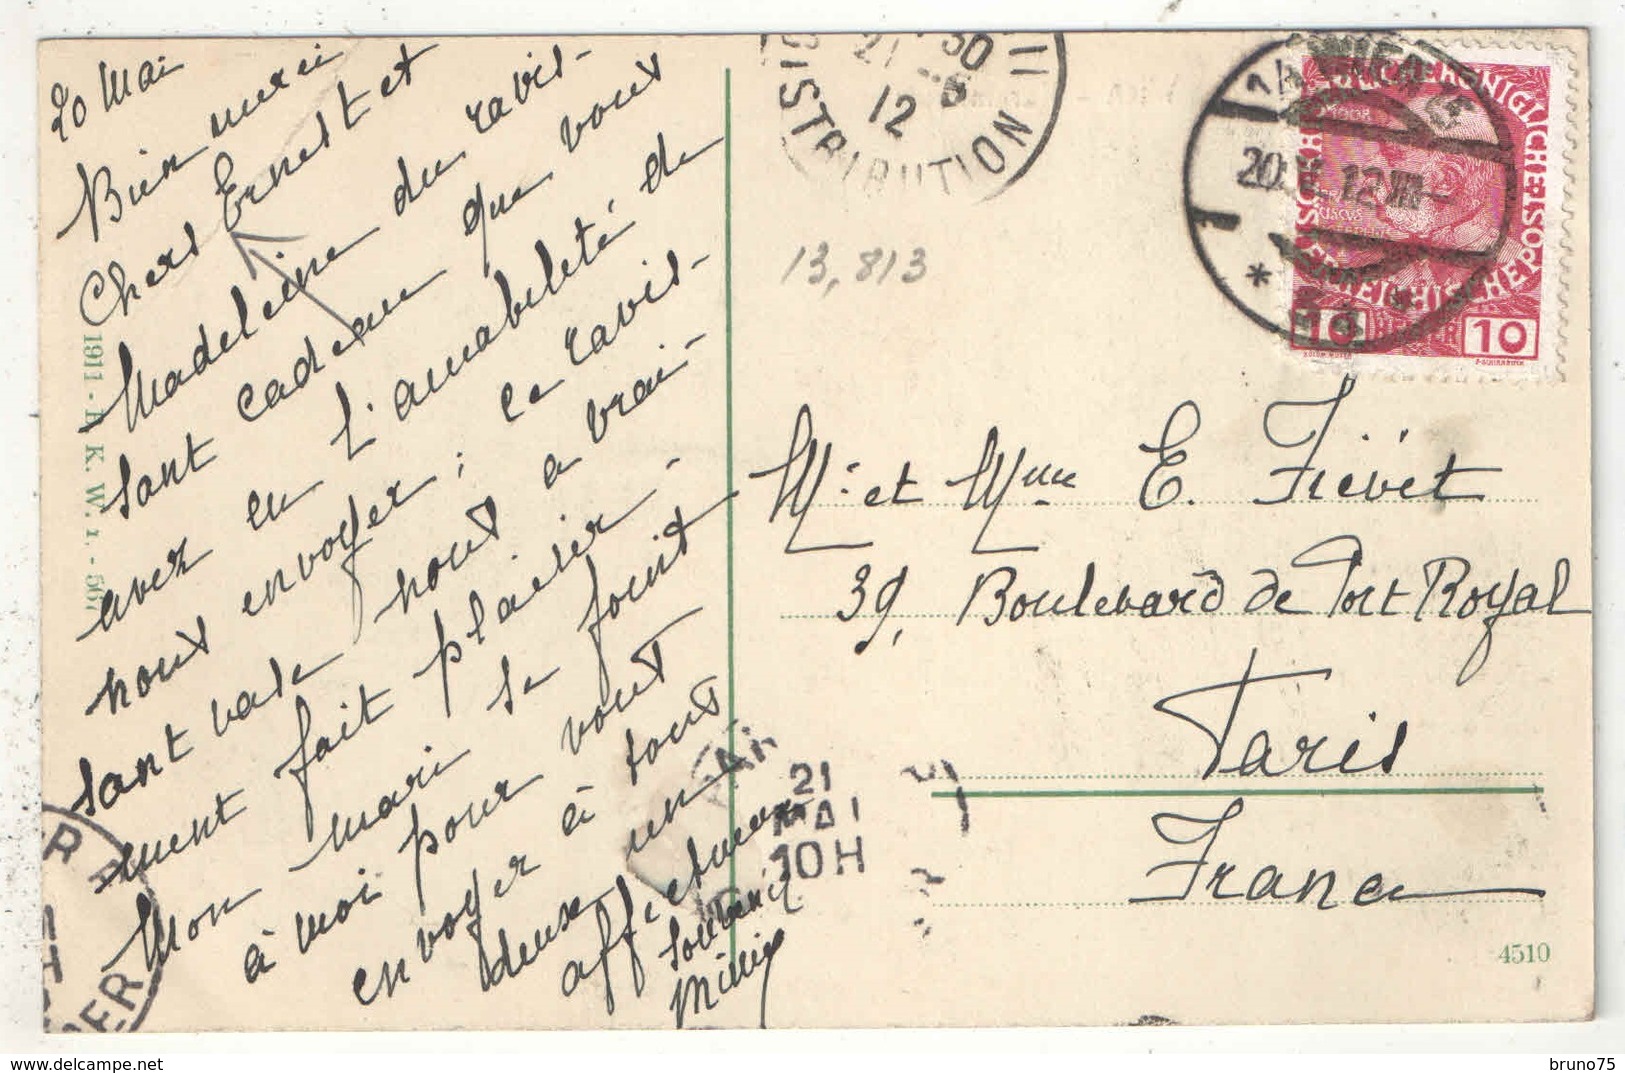 20 Mai
Bien merci
Chers Ernest et
Madeleine du ravis-
sant cadeau que vous
avez eu l'amabilité de
nous envoyer ; ce ravis-
sant vase nous a vrai-
ment fait plaisir.
Mon mari se joint
à moi pour vous
envoyer à tous
deux un
affectueux
souvenir
1911 - K. K. W. I. - 567
DISTRIBUTION
21 5
12
13,813
20.V.12
KAISERLICHE KÖNIGLICHE
ÖSTERREICHISCHE POST
1908
10 HELLER 10
Mr et Mme E. Fiévet
39, Boulevard de Port Royal
Paris
France
21
MAI
10H
4510
bruno75